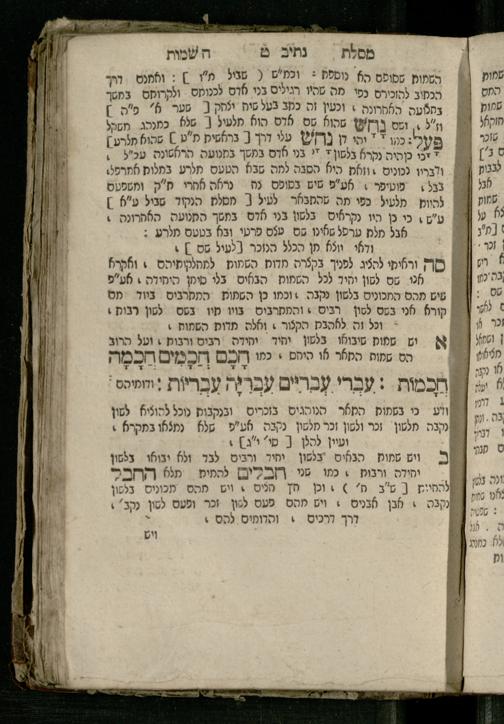 מסלת נתיב ט השמות
השמות שסופם הא נוספת : וכמ״ש ( שביל מ״ז ] : ואמנם דרך
הכתוב להזכירם כפי מה שהיו רגילים בני אדם לכנותם ולקרותם במשך
בתנועה האחרונה , וכעין זה כתב בעל שיח יצחק [ שער א׳ פ״ה ]
וז״ל , ושם נחש שהוא שם אדם הוא מלעיל [ שלא כמנהג משקל
פעל : כמו יהי דן נחש עלי דרך [ בראשית מ״ט ] שהוא מלרע ]
כי כן היה נקרא בלשון בני אדם במשך בתנועה הראשונה עכ״ל ,
ודבריו נכונים , וזאת היא הסבה למה שבא הטעם מלרע במלות אמרפל,
בבל , פוטיפר , אע״פ שיש בסופם נח נראה אחרי ח״ק ומשפטם
להיות מלעיל כפי מה שהתבאר לעיל [ מסלת הנקוד שביל ע״א ]
ע״ש , כי כן היו נקראים בלשון בני אדם במשך התנועה האחרונה ,
אבל מלת ערפל שאינו שם עצם פרטי ובא בטעם מלרע :
ודאי יוצא מן הכלל הנזכר [ לעיל שם ] ,
סה וראיתי להציג לפניך בקצרה מדות השמות למחלקותיהם , ואקרא
אני שם לשון יחיד לכל השמות הבאים בלי סימן היחידה , אע״פ
שיש מהם המכונים בלשון נקבה , וכמו כן השמות המתרבים ביוד מם
קורא אני בשם לשון רבים , והמתרבים בויו תיו בשם לשון רבות ,
וכל זה לאהבת הקצור , ואלה מדות השמות ,
א יש שמות שיבואו בלשון יחיד יחידה רבים ורבות , ועל הרוב
הם שמות התאר או היחס , כמו חכם חכמים חכמה
חכמות : עברי עבריים עבריה עבריות : ודומיהם
ודע כי בשמות התאר הנוהגים בזכרים ובנקבות נוכל להוציא לשון
נקבה מלשון זכר ולשון זכר מלשון נקבה אע״פ שלא נמצאו במקרא ,
ועיין להלן [ סי׳ י״ג ] ,
ב ויש שמות הבאים בלשון יחיד ורבים לבד ולא יבואו בלשון
יחידה ורבות , כמו שני חבלים להמית מלא החבל
להחיות [ ש״ב ח׳ ) , וכן חץ חצים , ויש מהם מכונים בלשון
נקבה , אבן אבנים , ויש מהם פעם לשון זכר ופעם לשון נקב׳ ,
דרך דרכים , והדומים להם ,
ויש